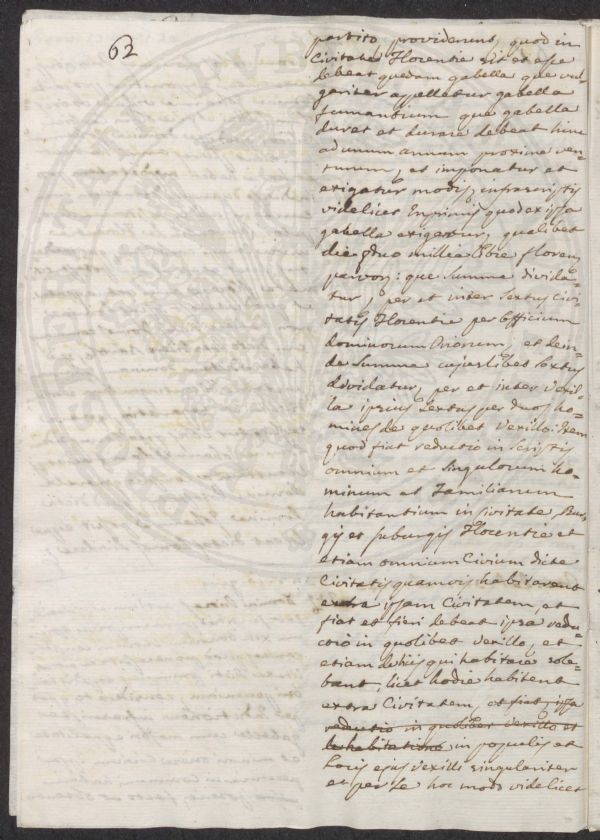 62
partito providerunt, quod in
Civitate Florentie sit et esse
debeat quedam gabella que vul=
gariter appelletur gabella
fumantium que gabella
duret et durare debeat hinc
ad unum annum proxime ven=
turum, et imponatur et
exigatur modis, infrascriptis
videlicet Inprimis quod ex ipsa
gabella exigetur, qualibet
die duo millia libre floreno,
parvor: que Summa divida=
tur, per et inter Sextus Civi=
tatis Florentie per Officium
dominorum Priorum, et dein=
de Summa cujuslibet Sextus
dividatur, per et inter Vexil=
la ipsius Sextus per duos ho=
mines de quolibet Vexillo: Item
quod fiat reductio in Scriptis
omnium et Singulorum ho=
minum et Familiarum
habitantium in Civitate, Bur=
gis et suburgis Florentie et
etiam omnium Civium dicte
Civitatis quamvis habitarent
extra ipsam Civitatem, et
fiat et fieri debeat ipsa redu=
ctio in quolibet Vexillo, et
etiam de his qui habitare sole=
bant, licet hodie habitent
extra Civitatem, et fiat, ipsa
reductio in quolibet Vexillo et
de habitatione in populis et
locis ejus Vexilli singulariter
et per se hoc modo videlicet